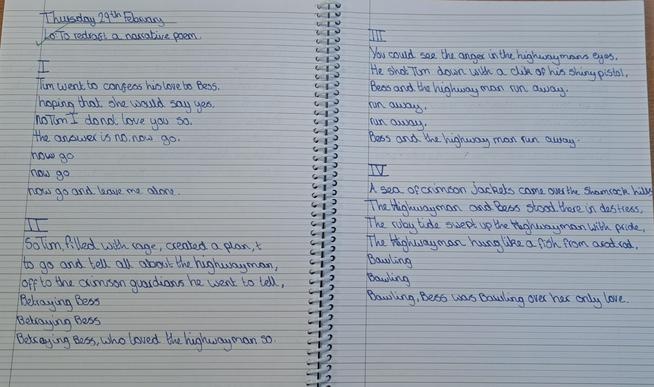 Thursday 29th February
L.o To redraft a narrative poem.
I
Tim went to confess his love to Bess.
hoping that she would say yes.
no Tim I do not love you so.
the answer is no. now go.
now go
now go
now go and leave me alone.
II
So Tim, filled with rage, created a plan,t
to go and tell all about the highwayman,
off to the crimson guardians he went to tell,
Betraying Bess
Betraying Bess
Betraying Bess, who loved the highwayman so.
III
You could see the anger in the highwaymans eyes,
He shot Tim down with a clik of his shiny pistol,
Bess and the highway man run away.
run away,
run away,
Bess and the highway man run away.
IV
A sea of crimson Jackets came over the Shamrock hills
The Highwayman and Bess stood there in destress,
The ruby tide swept up the Highwayman with pride,
The Highwayman hung like a fish from a rod,
Bawling
Bawling
Bawling, Bess was Bawling over her only love.